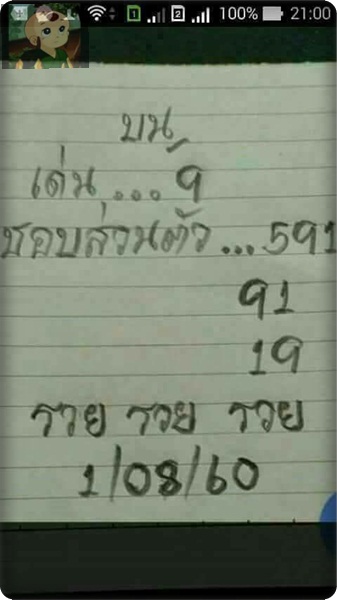 1 2 100% 21:00
บน
เด่น....9
ชอบส่วนตัว...591
91
19
รวย รวย รวย
1/08/60